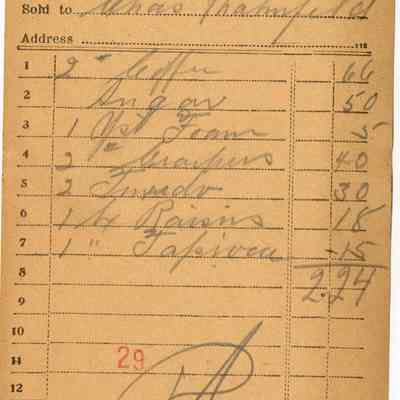 Sold to Chas
Address 118
1 2 " Coffee 66
2 Sugar 50
3 1 Yst Foam 5
4 2 " Crackers 40
5 2 30
6 1 Raisins 18
7 1 " Tapioca 15
8 2.24
9
10
11 29
12